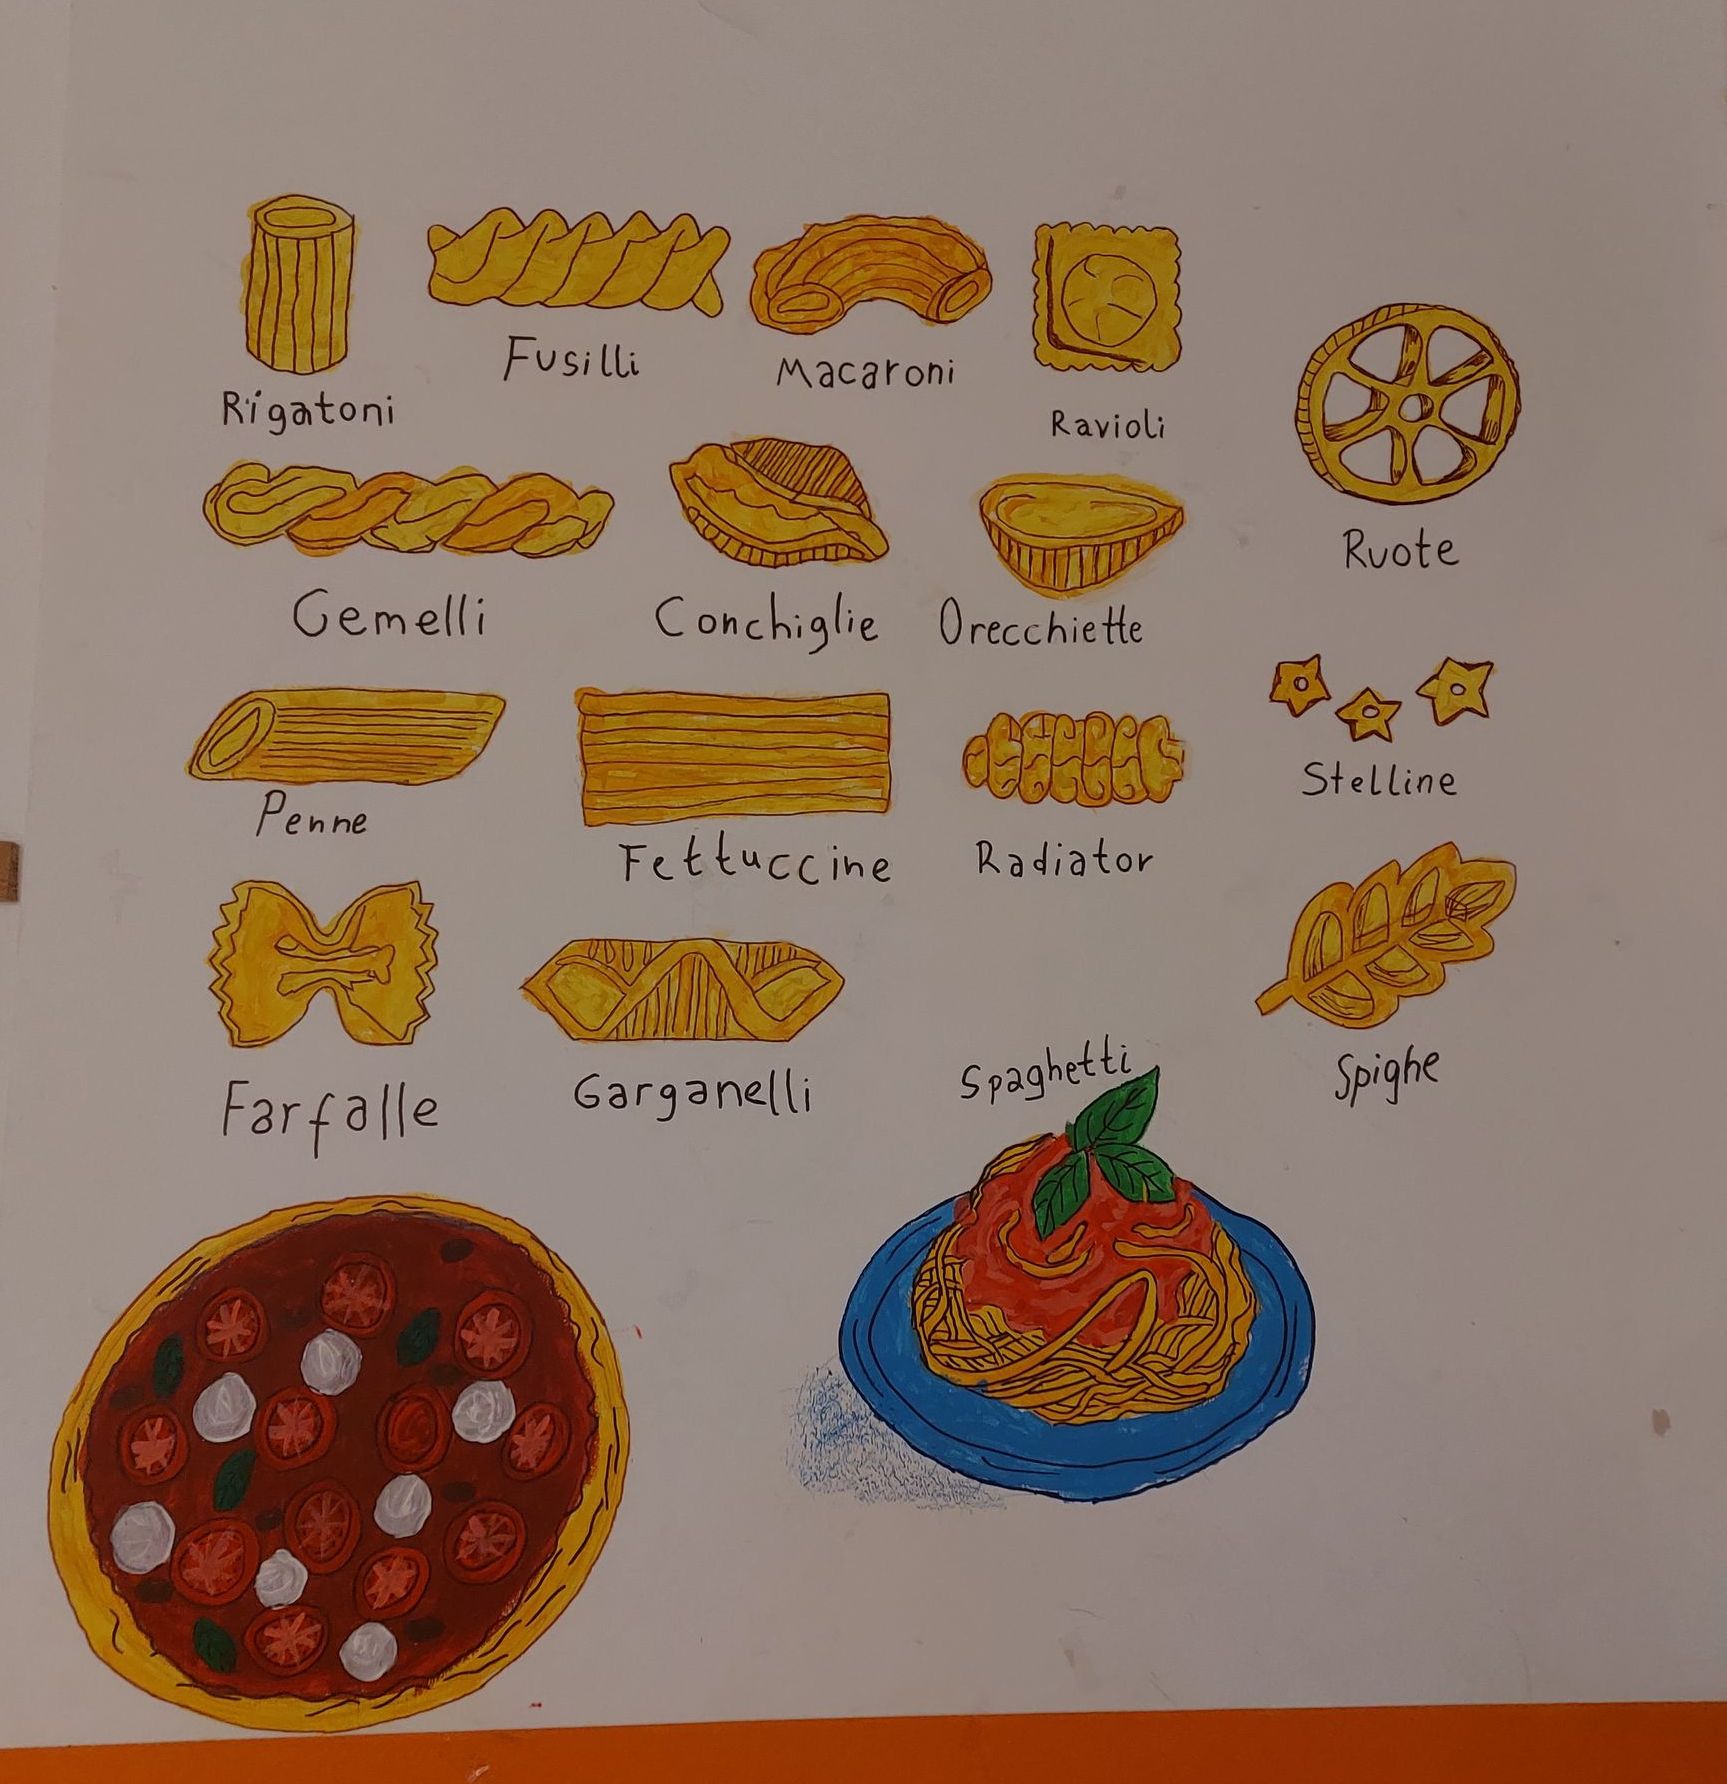 Rigatoni
Fusilli
Macaroni
Ravioli
Ruote
Gemelli
Conchiglie
Orecchiette
Penne
Fettuccine
Radiator
Stelline
Farfalle
Garganelli
Spaghetti
Spighe